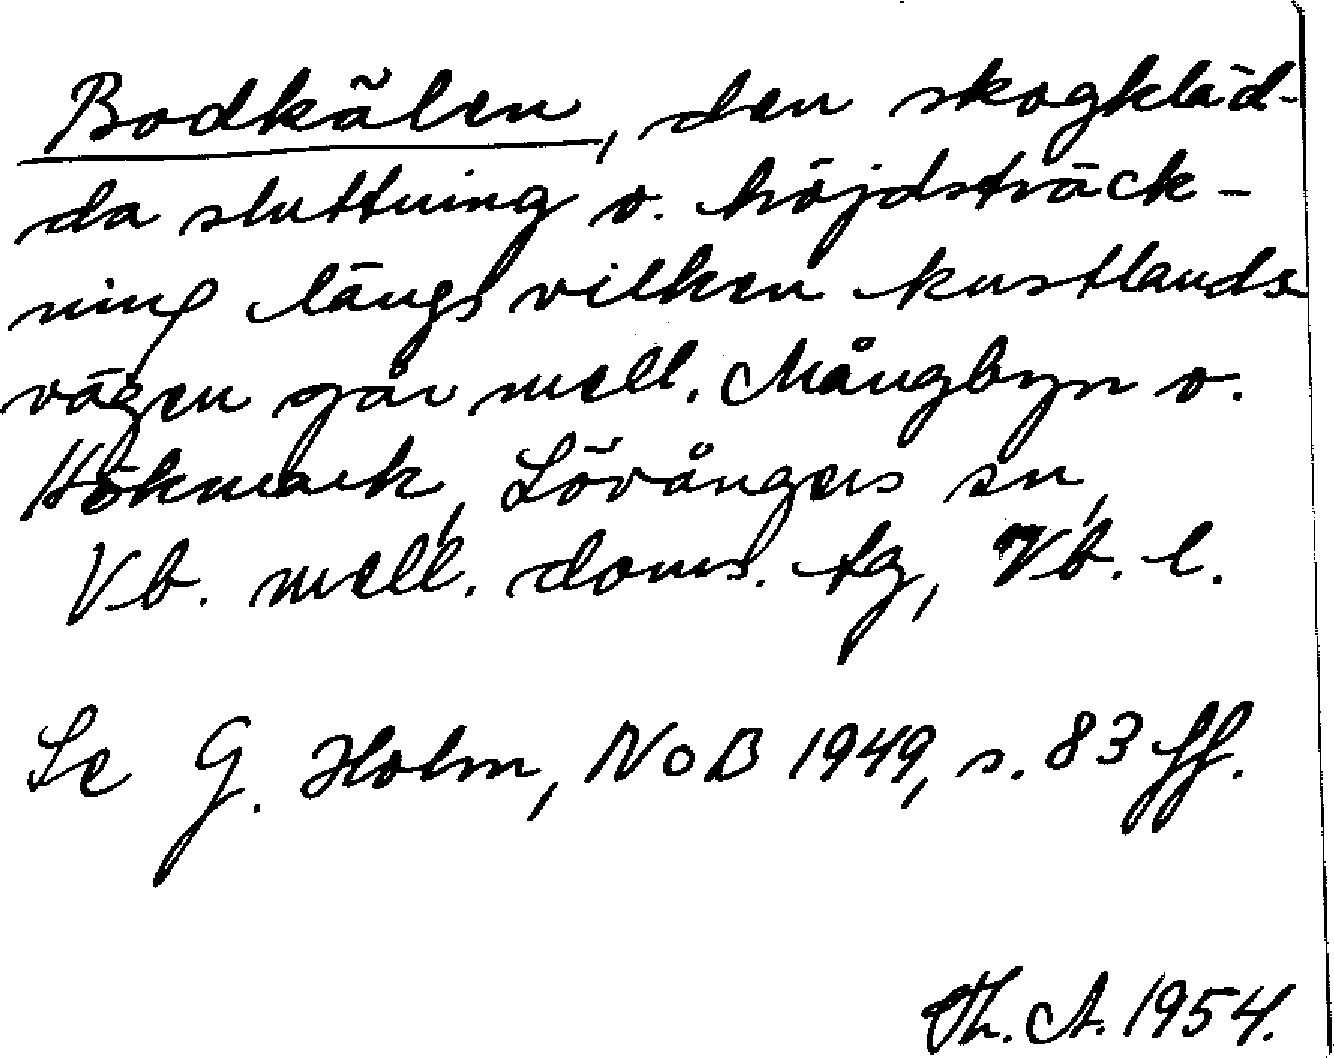 Bodkälen, den skogkläd-
da sluttning o. höjdsträck-
ning längs vilken kustlands-
vägen går mell. Mångbyn o.
Hökmark, Lövångers sn,
Vb. mell. doms. tg, Vb. l.
Se G. Holm, NoB 1949, s. 83 ff.
Th. A. 1954.